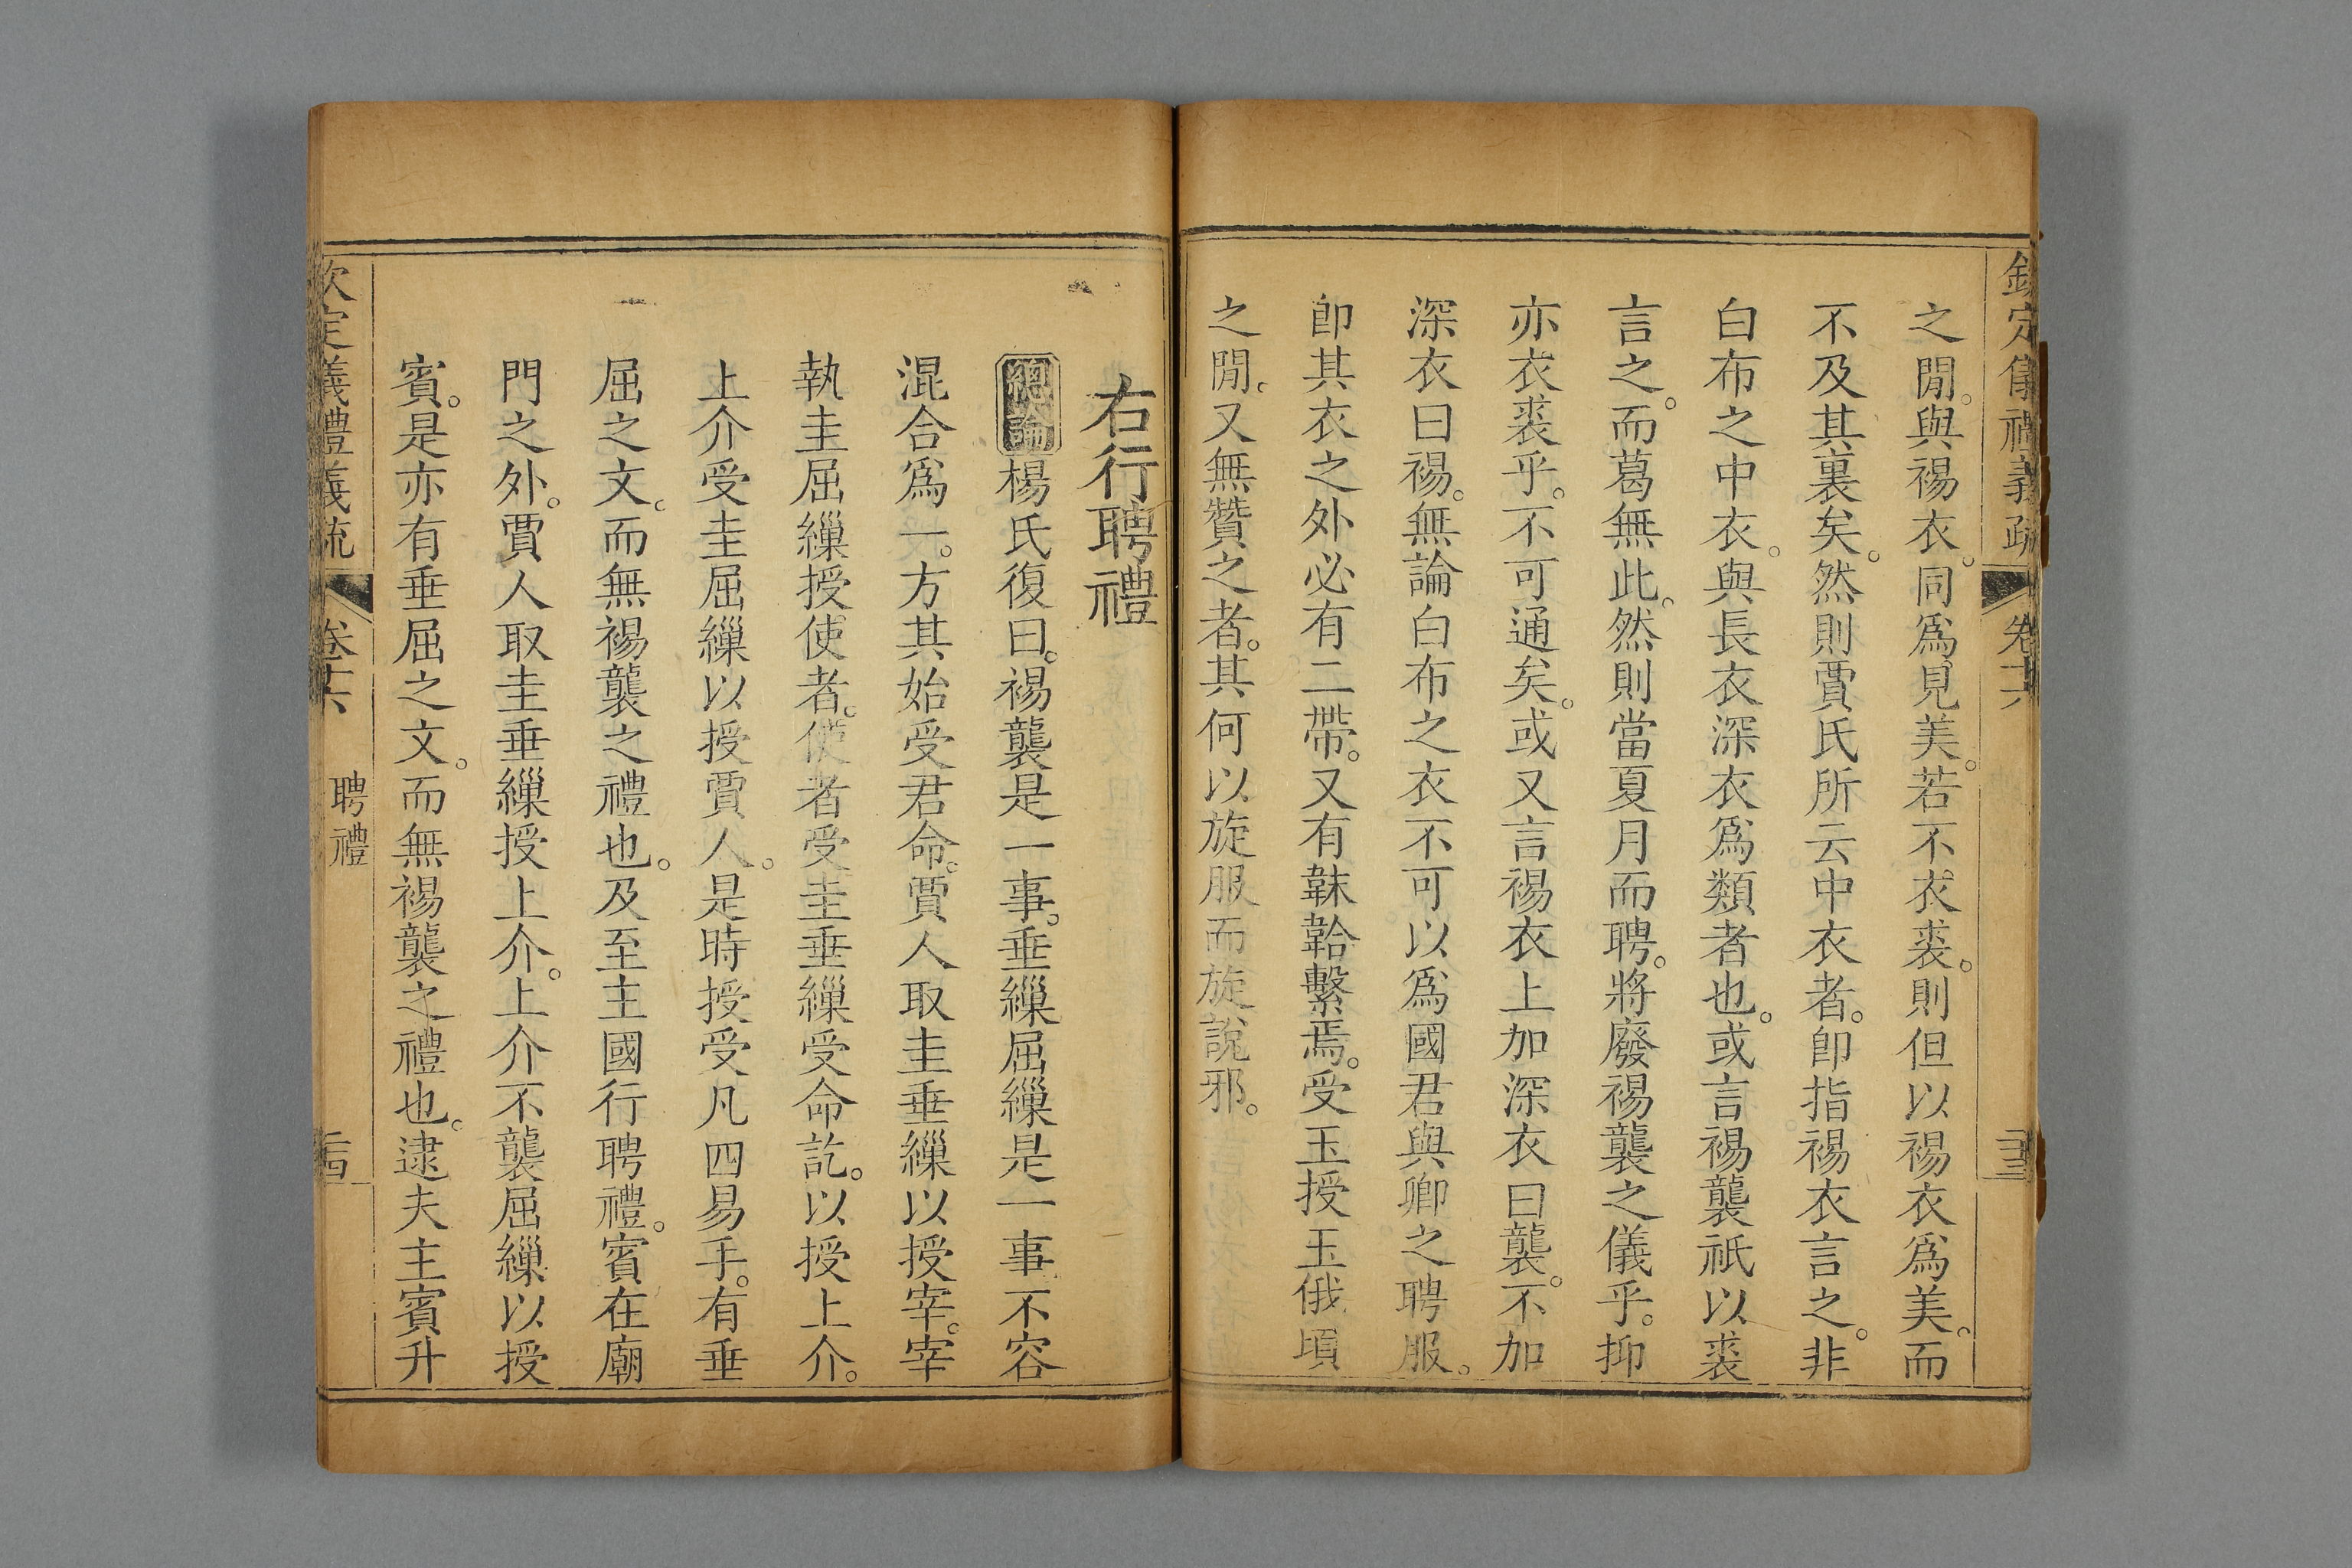 欽定儀禮義疏 卷十六
之閒。與裼衣。同爲見美。若不衣裘。則但以裼衣爲美。而
不及其裏矣。然則賈氏所云中衣者。卽指裼衣言之。非
白布之中衣。與長衣深衣爲類者也。或言裼襲祇以裘
言之。而葛無此。然則當夏月而聘。將廢裼襲之儀乎。抑
亦衣裘乎。不可通矣。或又言裼衣上加深衣曰襲。不加
深衣曰裼。無論白布之衣不可以爲國君與卿之聘服。
卽其衣之外必有二帶。又有韎韐繫焉。受玉授玉俄頃
之閒。又無贊之者。其何以旋服而旋說邪。
右行聘禮
總論楊氏復曰。裼襲是一事。垂繅屈繅是一事不容
混合爲一。方其始受君命。賈人取圭垂繅以授宰。宰
執圭屈繅授使者。使者受圭垂繅受命訖。以授上介。
上介受圭屈繅以授賈人。是時授受凡四易手。有垂
屈之文。而無裼襲之禮也。及至主國行聘禮。賓在廟
門之外。賈人取圭垂繅授上介。上介不襲屈繅以授
賓。是亦有垂屈之文。而無裼襲之禮也。逮夫主賓升
欽定儀禮義疏 卷十六 聘禮